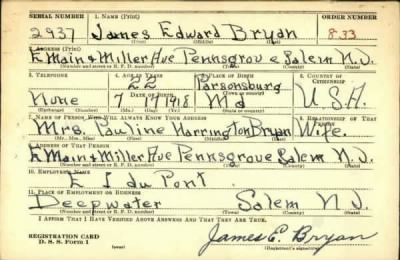 SERIAL NUMBER 1. NAME (Print) ORDER NUMBER
2937 James Edward Bryan 833
(First) (Middle) (Last)
2. ADDRESS (Print)
E Main & Miller Ave Pennsgrove Salem N.J.
(Number and street or R. F. D. number) (Town) (County) (State)
3. TELEPHONE 4. AGE IN YEARS 5. PLACE OF BIRTH 6. COUNTRY OF CITIZENSHIP
22 Parsonsburg
DATE OF BIRTH (Town or county)
None 7 17 1918 Md U.S.A.
(Mo.) (Day) (Yr.) (State or country)
7. NAME OF PERSON WHO WILL ALWAYS KNOW YOUR ADDRESS 8. RELATIONSHIP OF THAT PERSON
Mrs. Pauline Harrington Bryan Wife.
(Mr., Mrs., Miss) (First) (Middle) (Last)
9. ADDRESS OF THAT PERSON
E Main & Miller Ave Pennsgrove Salem N.J.
(Number and street or R. F. D. number) (Town) (County) (State)
10. EMPLOYER'S NAME
E I du Pont.
11. PLACE OF EMPLOYMENT OR BUSINESS
Deepwater Salem N J.
(Number and street or R. F. D. number) (Town) (County) (State)
I AFFIRM THAT I HAVE VERIFIED ABOVE ANSWERS AND THAT THEY ARE TRUE.
REGISTRATION CARD
D. S. S. FORM 1 James E. Bryan
(Registrant's signature)